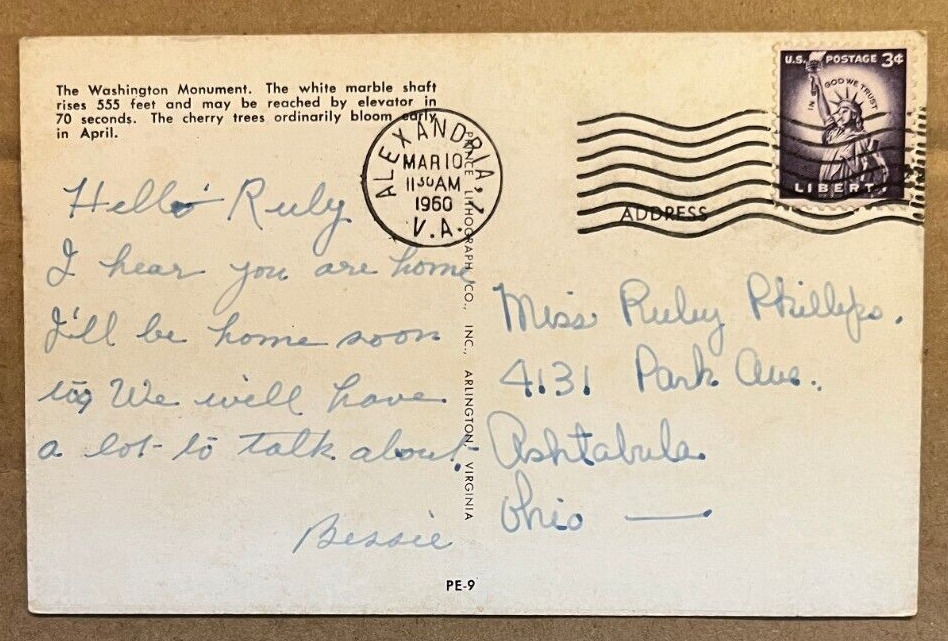 The Washington Monument. The white marble shaft
rises 555 feet and may be reached by elevator in
70 seconds. The cherry trees ordinarily bloom early
in April.
Hello Ruby
I hear you are home
I'll be home soon
too We will have
a lot to talk about.
Bessie
PRINCE LITHOGRAPH CO., INC., ARLINGTON, VIRGINIA
PE-9
ALEXANDRIA,
MAR 10
11 30 AM
1960
V.A.
U.S. POSTAGE 3¢
IN GOD WE TRUST
LIBERTY
ADDRESS
Miss Ruby Phillips.
4131 Park Ave.,
Ashtabula
Ohio —